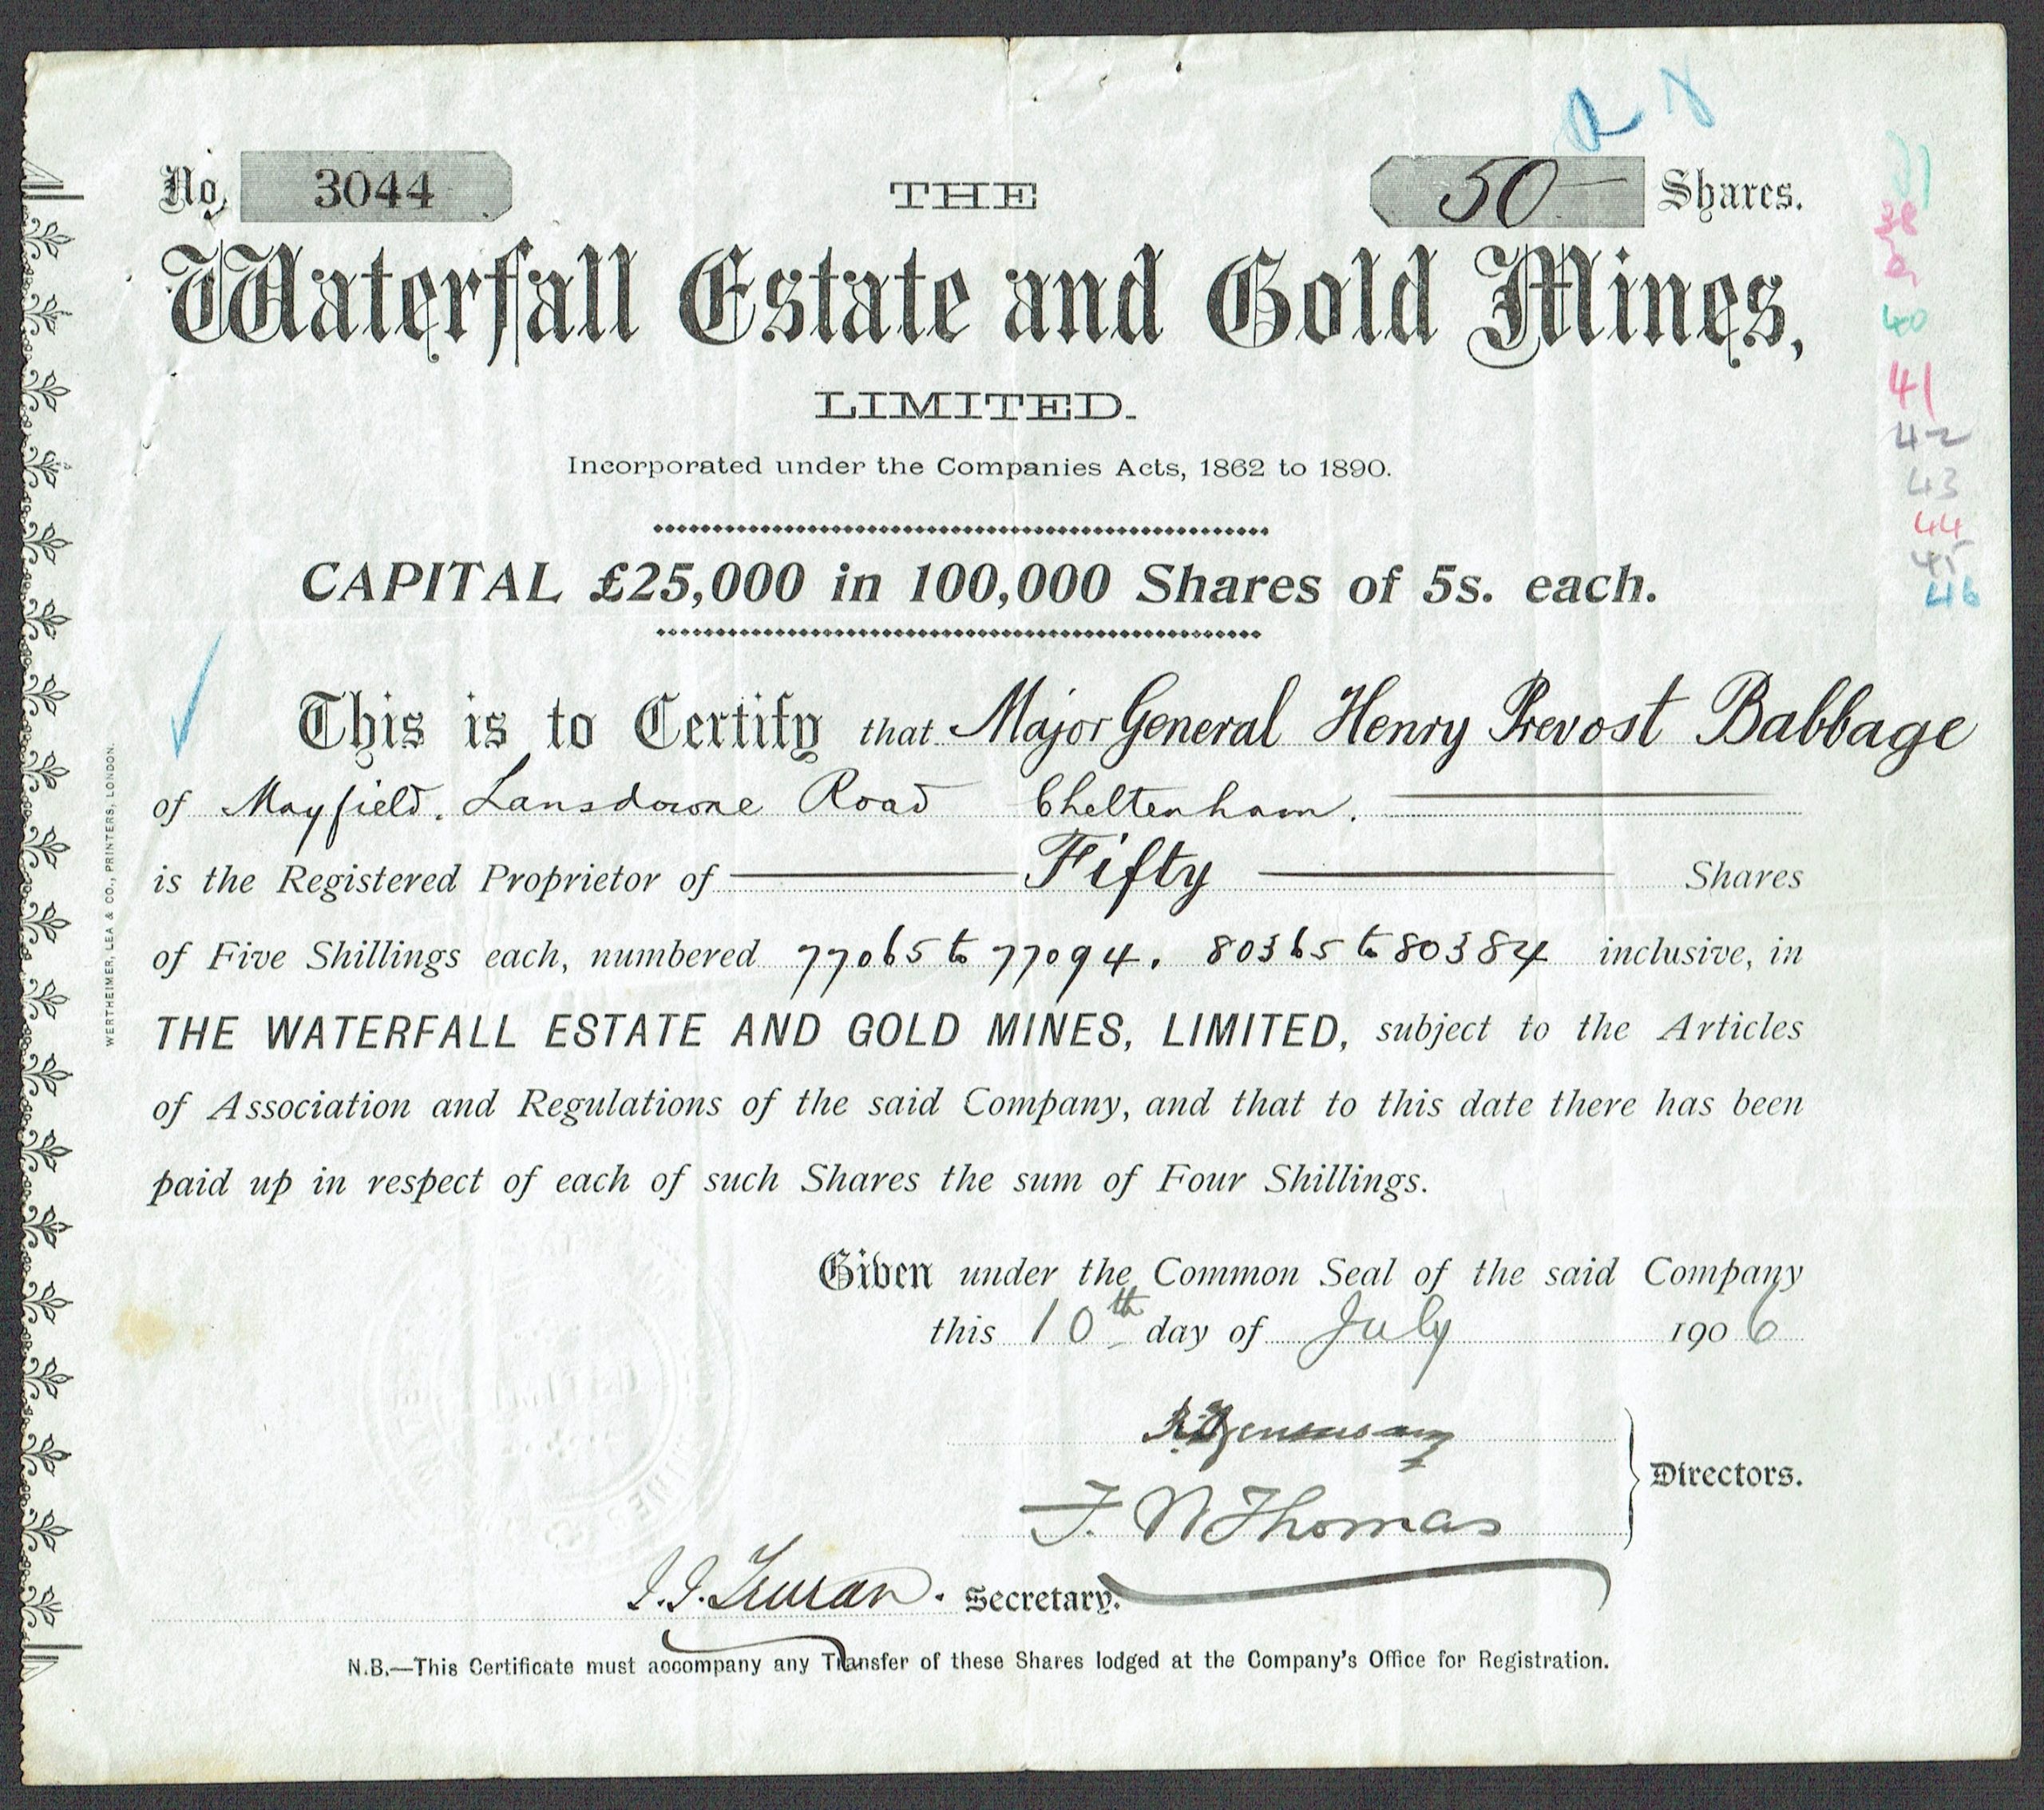 No. 3044
50 Shares.
THE
Waterfall Estate and Gold Mines,
LIMITED.
Incorporated under the Companies Acts, 1862 to 1890.
CAPITAL £25,000 in 100,000 Shares of 5s. each.
This is to Certify that Major General Henry Prevost Babbage
of Mayfield. Lansdowne Road Cheltenham.
is the Registered Proprietor of Fifty Shares
of Five Shillings each, numbered 77065 to 77094. 80365 to 80384 inclusive, in
THE WATERFALL ESTATE AND GOLD MINES, LIMITED, subject to the Articles
of Association and Regulations of the said Company, and that to this date there has been
paid up in respect of each of such Shares the sum of Four Shillings.
Given under the Common Seal of the said Company
this 10th day of July 1906
F. W Thomas
Directors.
Secretary.
N.B.—This Certificate must accompany any Transfer of these Shares lodged at the Company's Office for Registration.
WERTHEIMER, LEA & CO., PRINTERS, LONDON.
38
40
41
42
43
44
45
46